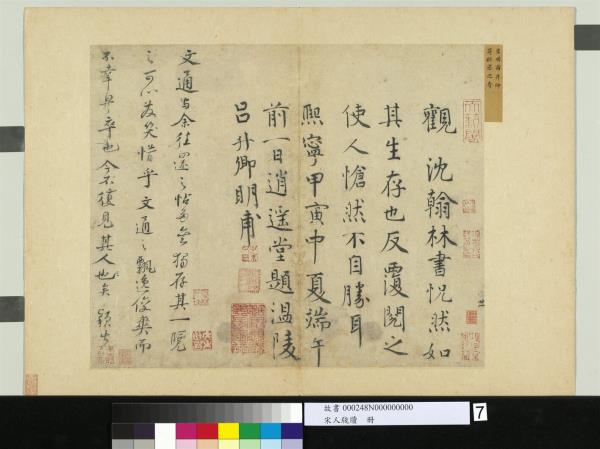 觀 沈翰林書怳然如
其生存也反覆閱之
使人愴然不自勝耳
熙寧甲寅中夏端午
前一日逍遥堂題温陵
呂升卿明甫
文通與余往還之帖多矣獨存其一覽
之可以發笑惜乎文通之飄逸俊爽而
不幸早卒也今不復見其人也矣
故書 000248N000000000
宋人牋牘 冊
7